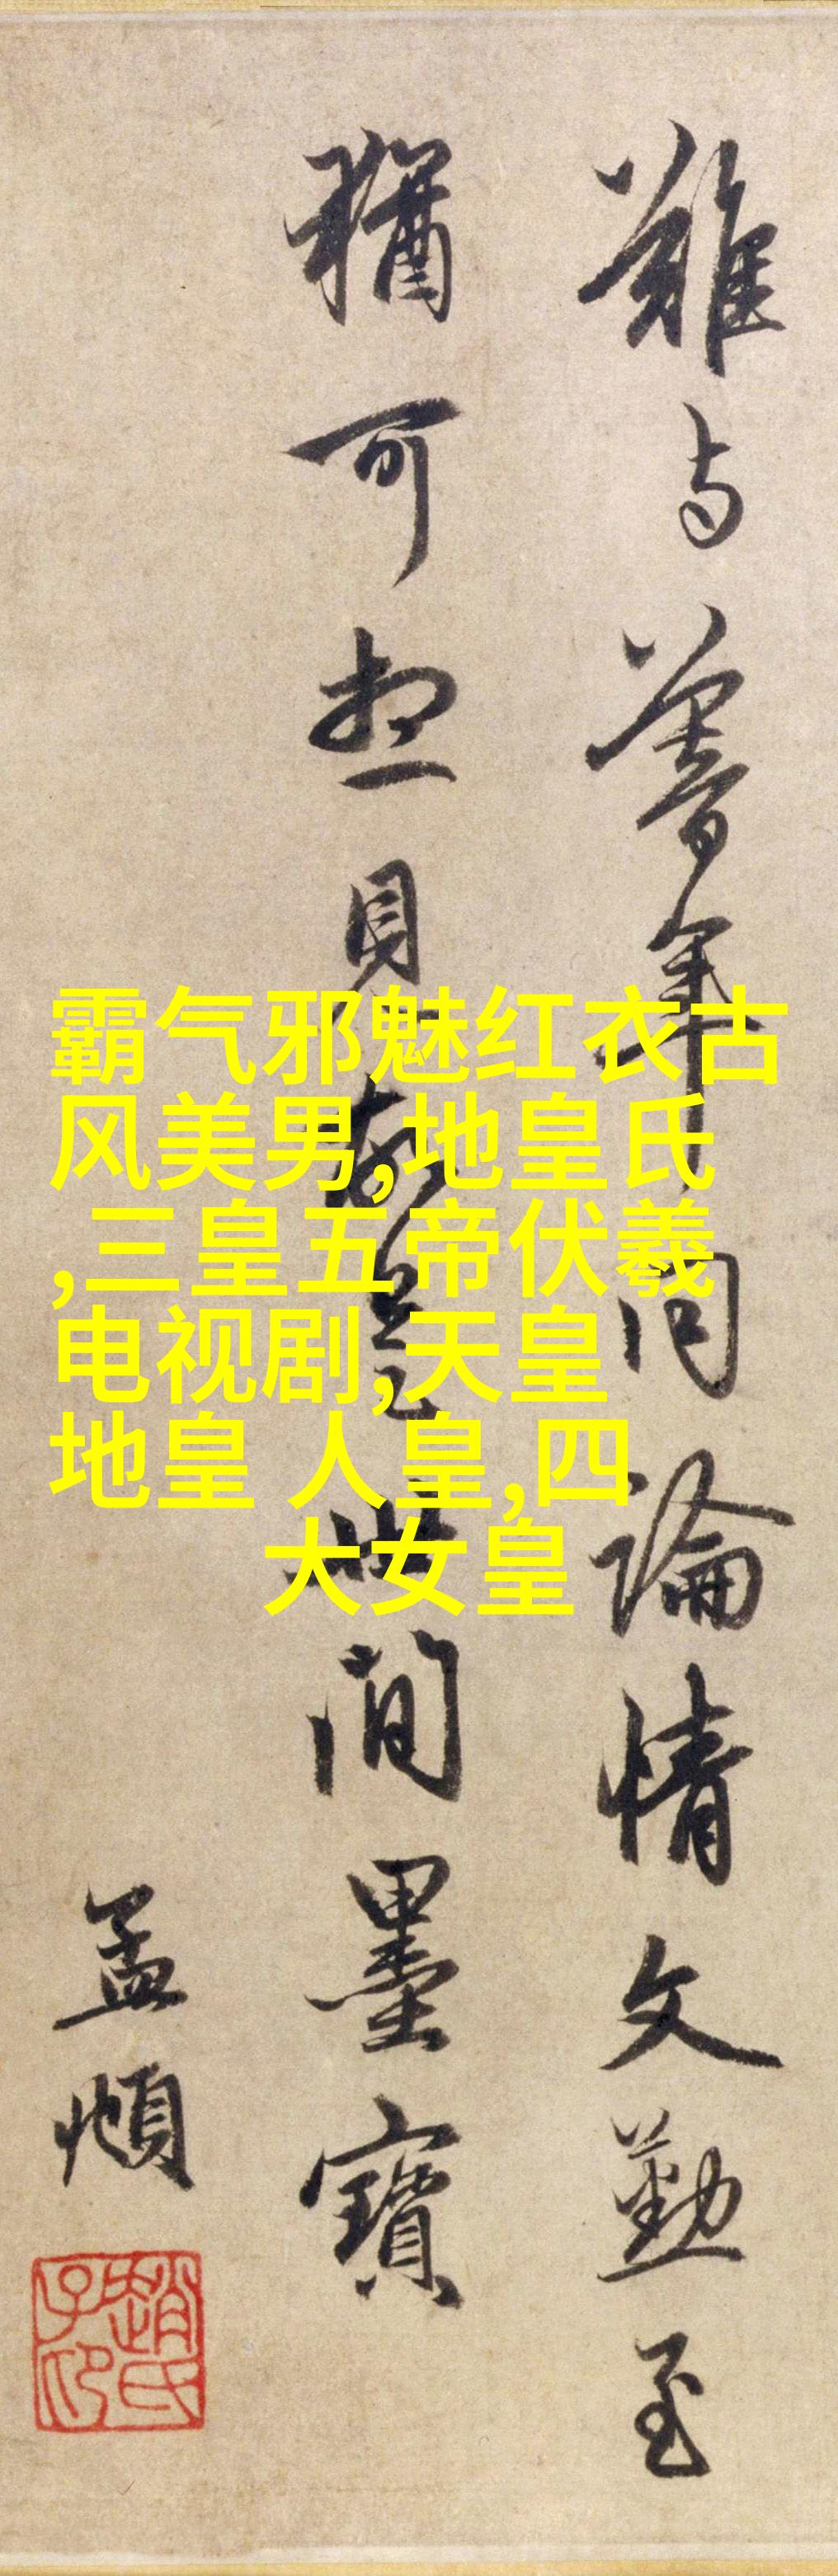 難与暮年同論情文勤至
猶可想見故是世間墨寶
孟頫
趙氏子印
霸气邪魅红衣古
风美男,地皇氏
,三皇五帝伏羲
电视剧,天皇
地皇 人皇,四
大女皇